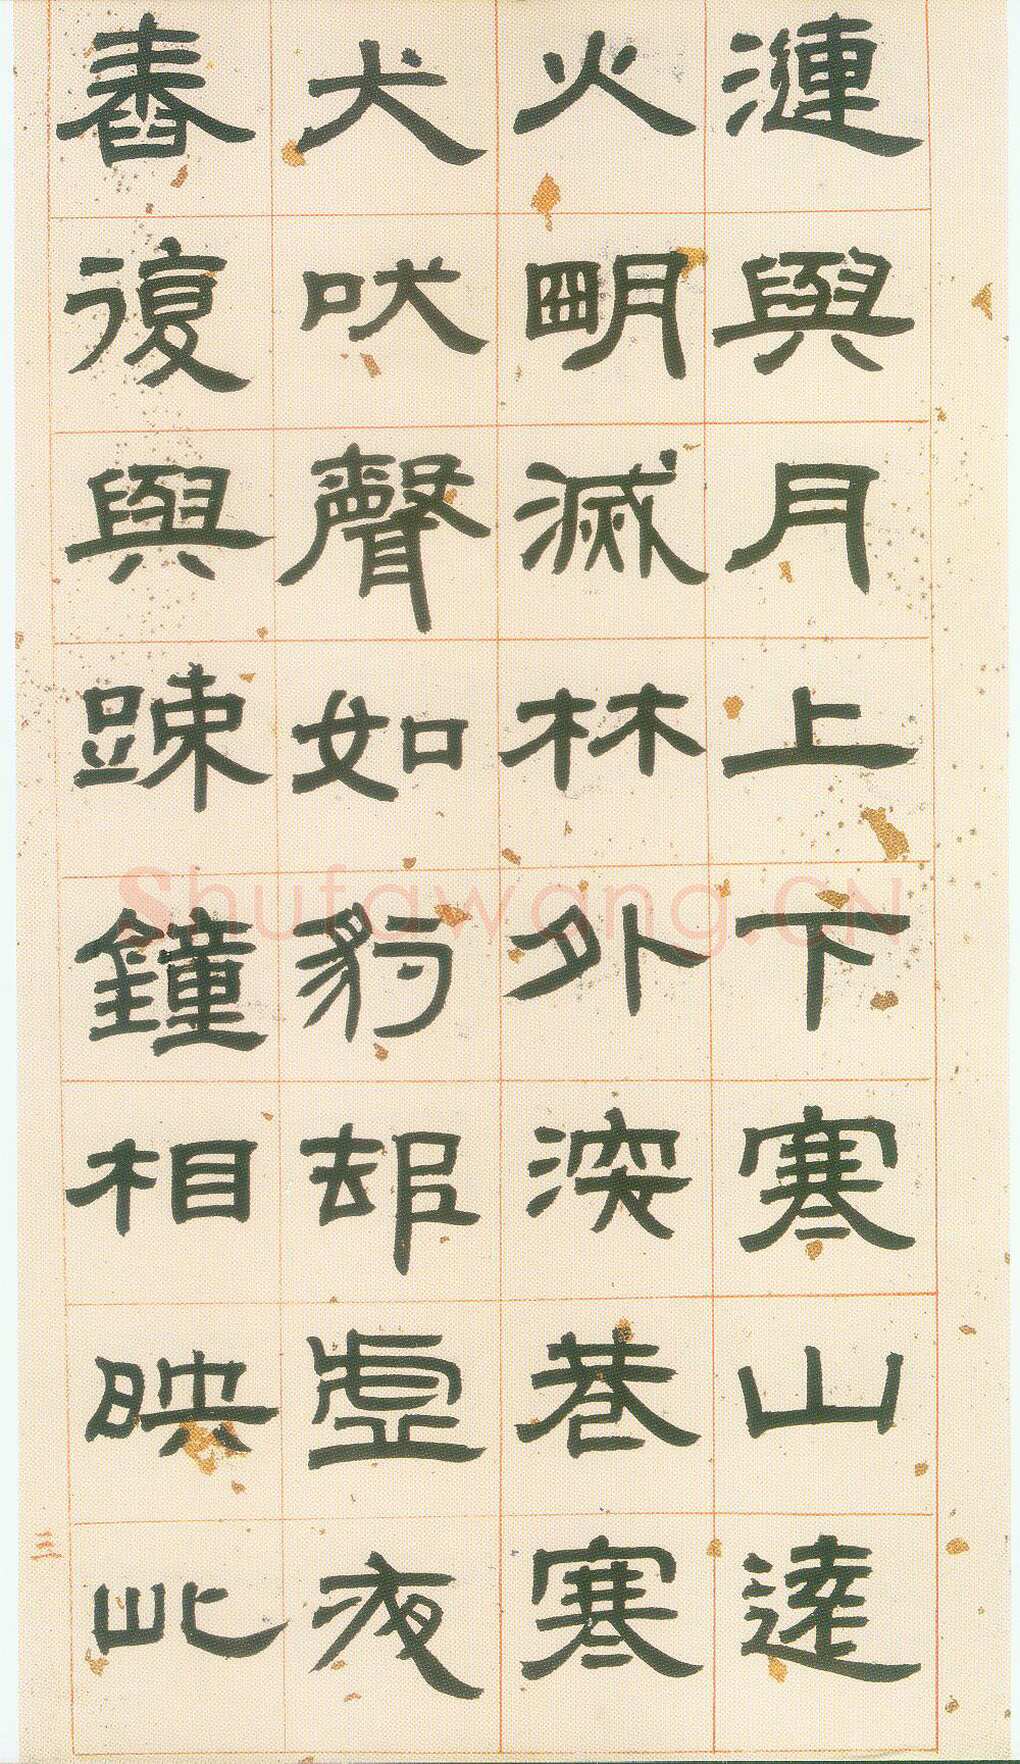 漣與月上下寒山遠
火明滅林外深巷寒
犬吠聲如豹村虛夜
舂復與疎鐘相暎此
三
Shufawang.CN